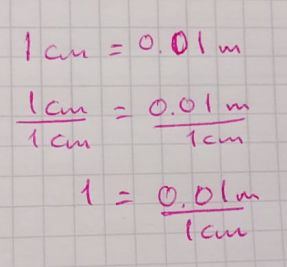 1 cm = 0.01 m
1 cm / 1 cm = 0.01 m / 1 cm
1 = 0.01 m / 1 cm